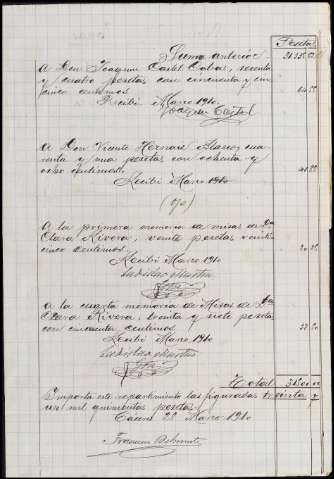 Pesetas
Suma anterior
A Don Joaquin Castel Cabas, sesenta
y cuatro pesetas con cincuenta y cin
co centimos. 64 55
Recibí Marzo 1910
Joaquin Castel
A Don Vicente Hernan Blasco, cua
renta y una pesetas con ochenta y
ocho centimos. 41 88
Recibí Marzo 1910
A la primera memoria de misas de Dª
Clara Rivera, veinte pesetas veinti
cinco centimos. 20 25
Recibí Marzo 1910
Ladislao
A la cuarta memoria de Misas de Dª
Clara Rivera, treinta y siete pesetas
con cincuenta centimos 37 50
Recibí Marzo 1910
Ladislao
Total
Importa este repartimiento las figuradas treinta y
un mil quinientas pesetas.
Marzo 1910
Francisco